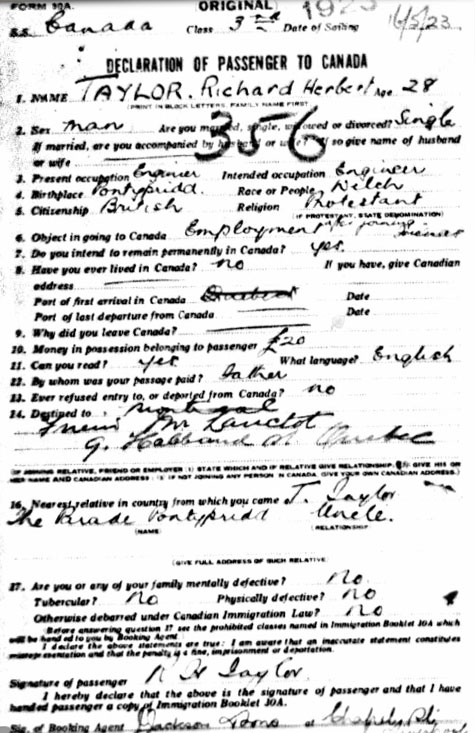 FORM 30A. ORIGINAL) 1923
S.S. Canada Class 3rd Date of Sailing 16/5/23
DECLARATION OF PASSENGER TO CANADA
1. NAME TAYLOR. Richard Herbert Age 28
(PRINT IN BLOCK LETTERS, FAMILY NAME FIRST
356
2. Sex man Are you married, single, widowed or divorced? Single
If married, are you accompanied by husband or wife? If so give name of husband
or wife
3. Present occupation Engineer Intended occupation Engineer
4. Birthplace Pontypridd. Race or People Welch
5. Citizenship British Religion Protestant
(IF PROTESTANT, STATE DENOMINATION)
6. Object in going to Canada Employment joining friends
7. Do you intend to remain permanently in Canada? yes.
8. Have you ever lived in Canada? no If you have, give Canadian
address
Port of first arrival in Canada Quebec Date
Port of last departure from Canada Date
9. Why did you leave Canada?
10. Money in possession belonging to passenger £20
11. Can you read? yes What language? English
12. By whom was your passage paid? father
13. Ever refused entry to, or deported from Canada? no
14. Destined to Montreal
Friend Mr Lanctot
G. St Quebec
IF JOINING RELATIVE, FRIEND OR EMPLOYER (1) STATE WHICH AND IF RELATIVE GIVE RELATIONSHIP. (2) GIVE HIS OR
HER NAME AND CANADIAN ADDRESS. (3) IF NOT JOINING ANY PERSON IN CANADA, GIVE YOUR OWN CANADIAN ADDRESS.)
16. Nearest relative in country from which you came T. Taylor
The Parade Pontypridd Uncle.
(NAME) (RELATIONSHIP
(GIVE FULL ADDRESS OF SUCH RELATIVE)
17. Are you or any of your family mentally defective? No.
Tubercular? No Physically defective? No
Otherwise debarred under Canadian Immigration Law? No
Before answering question 17 see the prohibited classes named in Immigration Booklet 30A which
will be hand to you by Booking Agent.
I declare the above statements are true: I am aware that an inaccurate statement constitutes
misrepresentation and that the penalty is a fine, imprisonment or deportation.
Signature of passenger R H Taylor.
I hereby declare that the above is the signature of passenger and that I have
handed passenger a copy of Immigration Booklet 30A.
Sig. of Booking Agent Jackson Sons at